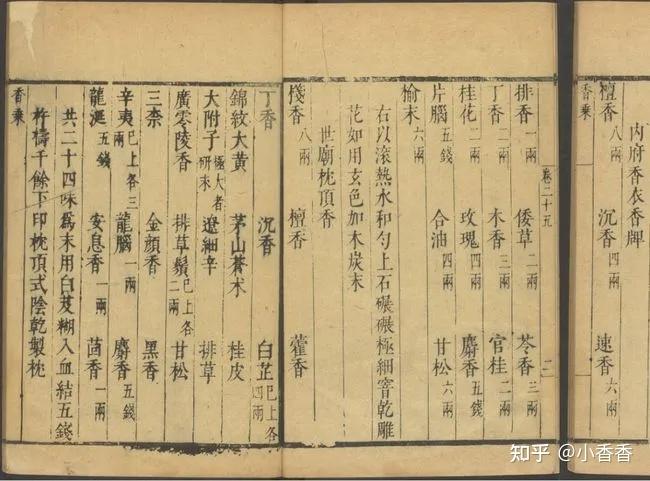 内府香衣香牌
檀香八兩 沉香四兩 速香六兩
香乘
卷二十五 二
排香一兩 倭草二兩 苓香三兩
丁香二兩 木香三兩 官桂二兩
桂花二兩 玫瑰四兩 麝香五錢
片腦五錢 合油四兩 甘松六兩
榆末六兩
右以滾熱水和勻上石碾碾極細窨乾雕
花如用玄色加木炭末
世廟枕頂香
棧香八兩 檀香 藿香
丁香 沉香 白芷已上各四兩
錦紋大黃 茅山蒼朮 桂皮
大附子極大者研末 遼細辛 排草
廣零陵香 排草鬚已上各二兩 甘松
三柰 金顏香 黑香
辛夷已上各三兩 龍腦一兩 麝香五錢
龍涎五錢 安息香一兩 茴香一兩
共二十四味爲末用白芨糊入血結五錢
杵擣千餘下印枕頂式陰乾製枕
香乘
知乎 @小香香